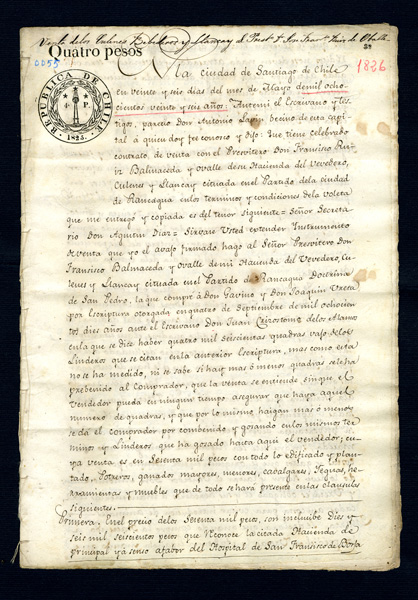 Venta de los Culenes Bebederos y Llancay al Presb.º D. Son Fran.co Ruiz de Oballe
Quatro pesos
1826
REPUBLICA DE CHILE
1825
Na ciudad de Santiago de Chile
en veinte y seis dias del mes de Mayo de mil ocho-
cientos veinte y seis años: Antemi el Escrivano y tes-
tigos, parecio Don Antonio becino de esta capi-
tal á quien doy fee conosco y Dijo: Que tiene celebrado
contrato, de venta con el Presvitero Don Fransisco Ru-
iz Balmaceda y Ovalle de su Hacienda del Vevedero,
Culenes y Llancay cituada en el Partido dela ciudad
de Rancagua enlos terminos y condiciones dela boleta
que me entregó y copiada es del tenor siguiente = Señor Secreta-
rio Don Agustin Dias = Sirvase Usted extender Instrumento
de venta que yo el avajo firmado, hago al Señor Presvitero Don
Fransisco Balmaceda y Ovalle de mi Hacienda del Vevedero, Cu-
lenes y Llancay cituada en el Partido de Rancagua Doctrina
de San Pedro, la que compré à Don Gavino y Don Joaquin Ureta
por Escriptura otorgada en quatro de Septiembre de mil ochocien-
tos dies años ante el Escrivano Don Juan Crizostomo delos Alamos
en la que se dice haber quatro mil seiscientas quadras vajo delos
Linderos que se citan enla anterior Escriptura, mas como esta
no se ha medido, ni se sabe si hay mas ó menos quadras sele ha
prebenido al Comprador, que la venta se entiende sinque el
Vendedor pueda en ningun tiempo asegurar que haya aquel
numero de quadras, y que por lo mismo haigan mas ó menos
se dá el comprador por combenido y gosando enlos mismos ter-
minos y Linderos que ha gosado hasta aqui el vendedor; cu-
ya venta es en Sesenta mil pesos con todo lo edificado y plan-
tado, Potreros, ganados mayores, menores, cabalgares, Yeguas, he-
rramientas y muebles que de todo se hará presente enlas clausulas
siguientes.
Primera. En el precio delos Sesenta mil pesos, son incluibe Dies y
seis mil seiscientos pesos que reconoce la citada Hacienda de
principal y á senso afabor del Hospital de San Fransisco de Borja